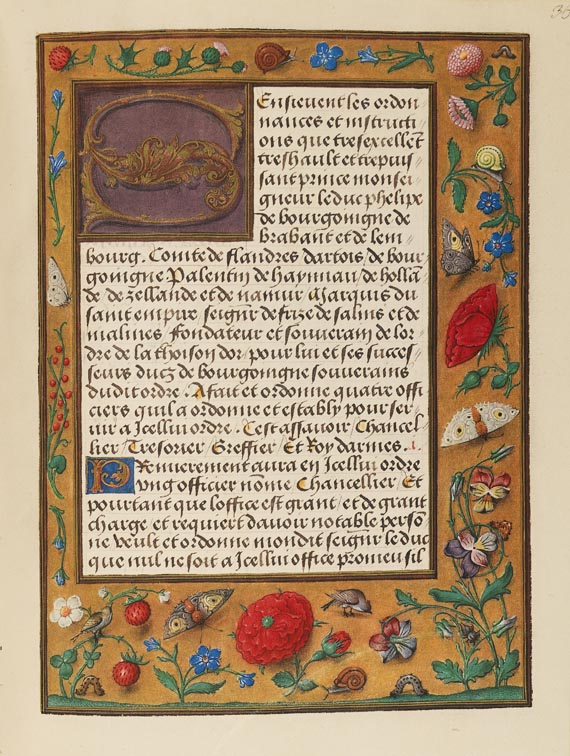 36
Ensievent les ordon
nances et instructi
ons que tresexcellēt
treshault et trepuis
sant prince monsei
gneur le duc phelipe
de bourgoingne de
brabant et de lem
bourg. Comte de flandres dartois de bour
goningne Palentin de haynnau de hollan
de de zellande et de namur Marquis du
saint empire seigūr de frize de salins et de
malines Fondateur et souverain de lor
dre de la thoison dor, pour lui et ses succes
seurs ducz de bourgoingne souverains
dudit ordre. A fait et ordonne quatre offi
ciers quil a ordonne et estably pour ser
vir a Icellui ordre. Cest assavoir Chancel
lier Tresorier Greffier Et Roy darmes.
Premierement aura en Icellui ordre
ung officier nōme Chancellier, Et
pourtant que loffice est grant, et de grant
charge et requiert davoir notable persō
ne veult et ordonne mondit seigūr le duc
que nul ne soit a Icellui office promeu sil